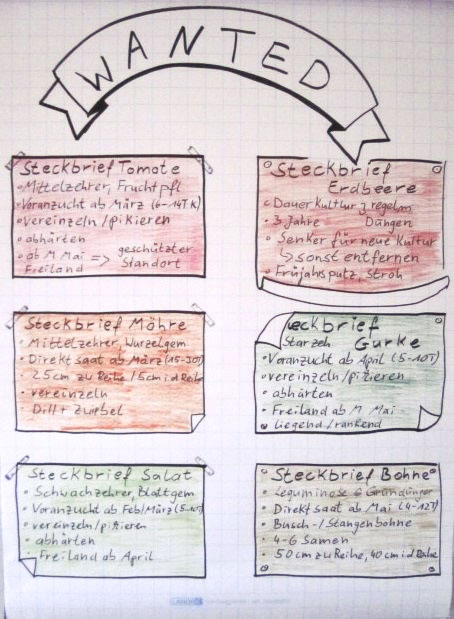 WANTED
Steckbrief Tomate
• Mittelzehrer, Fruchtpfl
• Voranzucht ab März (6-14T K)
• vereinzeln/pikieren
• abhärten
• ab M Mai => geschützter
Freiland Standort
Steckbrief
Erdbeere
• Dauerkultur, regelm
• 3 Jahre Düngen
• Senker für neue Kultur
↳ sonst entfernen
• Frühjahsputz, Stroh
Steckbrief Möhre
• Mittelzehrer, Wurzelgem
• Direktsaat ab März (15-30T)
25cm zu Reihe/5cm i.d Reihe
• vereinzeln
• Dill + Zwibel
eckbrief
Starzeh Gurke
• Voranzucht ab April (5-10T)
• vereinzeln/pikieren
• abhärten
• Freiland ab M Mai
• liegend/rankend
Steckbrief Salat
• Schwachzehrer, Blattgem
• Voranzucht ab Feb/März (5-10T)
• vereinzeln/pikieren
• abhärten
• Freiland ab April
Steckbrief Bohne
• Leguminose Gründünger
• Direktsaat ab Mai (4-12T)
• Busch-/Stangenbohne
• 4-6 Samen
• 50cm zu Reihe, 40cm i.d Reihe